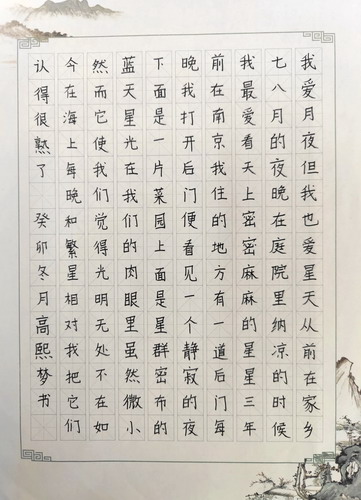 我爱月夜但我也爱星天从前在家乡
七八月的夜晚在庭院里纳凉的时候
我最爱看天上密密麻麻的星星三年
前在南京我住的地方有一道后门每
晚我打开后门便看见一个静寂的夜
下面是一片菜园上面是星群密布的
蓝天星光在我们的肉眼里虽然微小
然而它使我们觉得光明无处不在如
今在海上每晚和繁星相对我把它们
认得很熟了 癸卯冬月高熙梦书